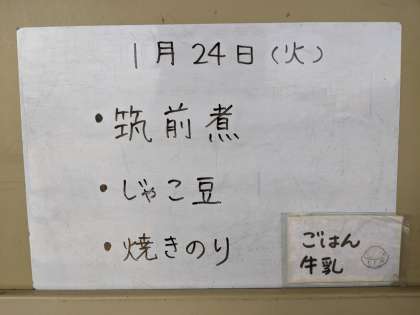 1月24日(火)
・筑前煮
・じゃこ豆
・焼きのり
ごはん
牛乳